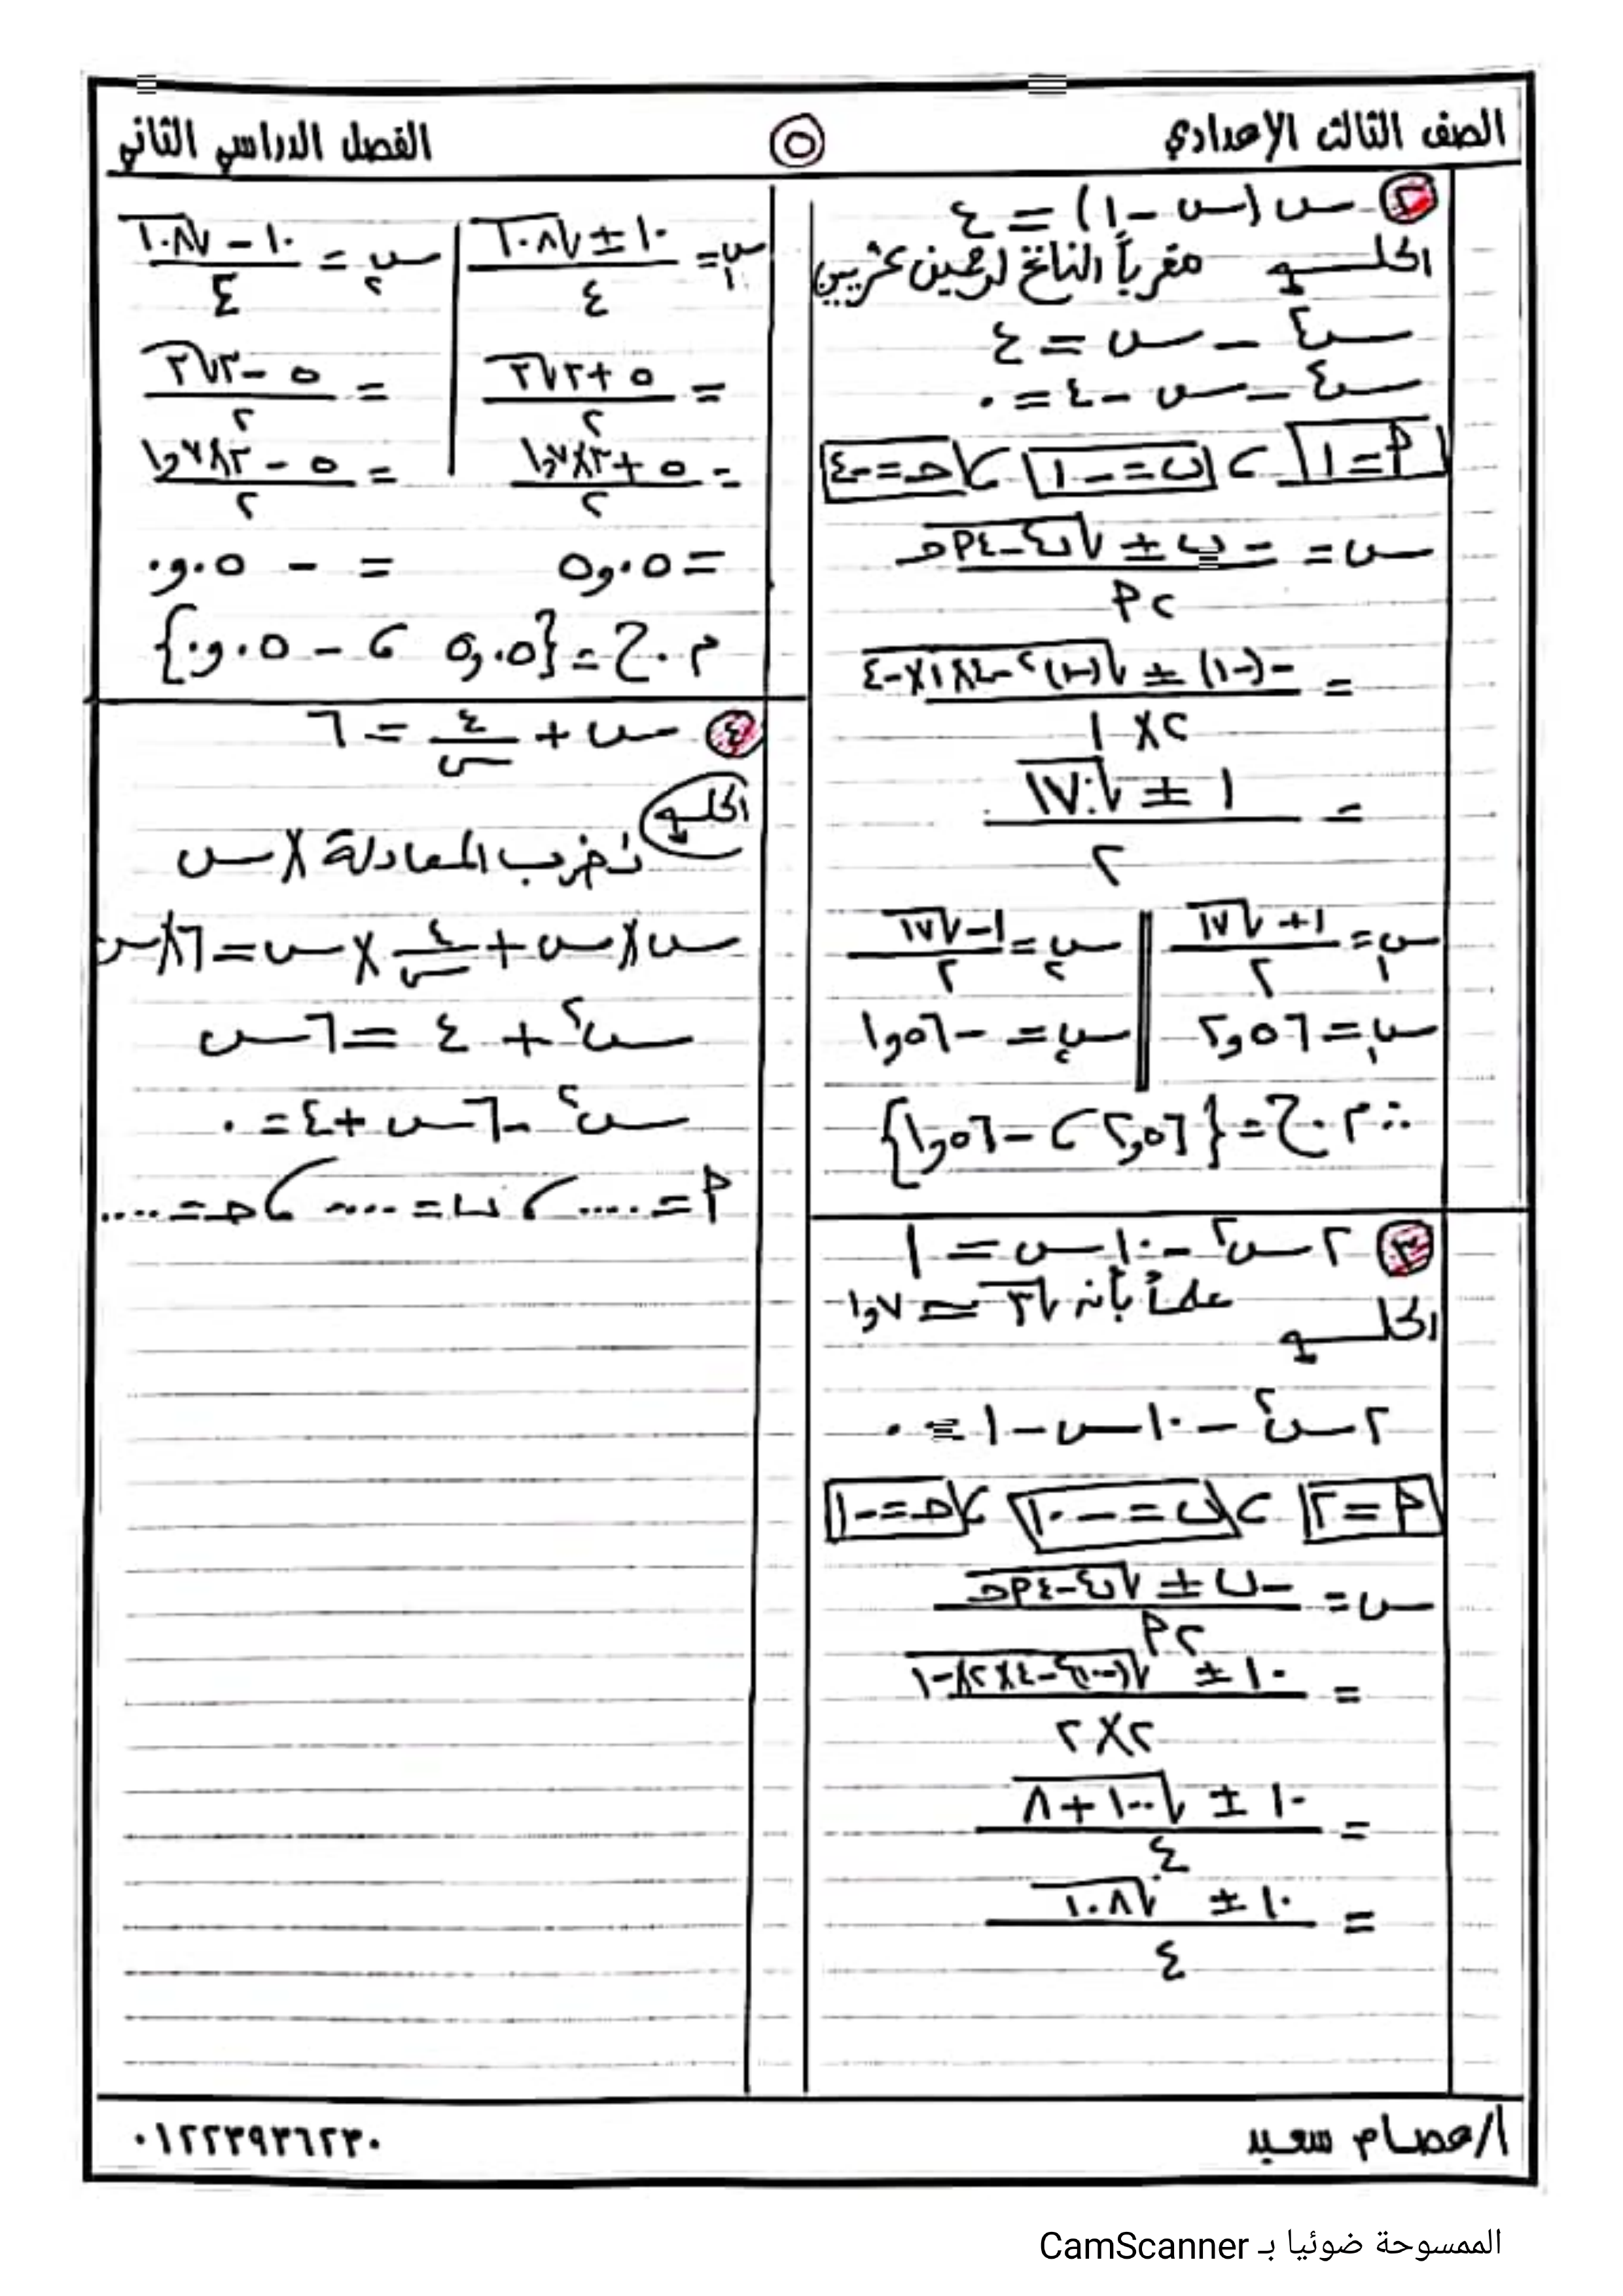 الصف الثالث الإعدادي
٥
الفصل الدراسي الثاني
٢ س (س - ١) = ٤
الحل مقرباً الناتج لرقمين عشريين
س٢ - س = ٤
س٢ - س - ٤ = ٠
٩ = ١ ، ب = -١ ، حـ = -٤
س = (-ب ± √(ب٢ - ٤٩حـ)) / ٢٩
= (-(-١) ± √((-١)٢ - ٤×١×-٤)) / (٢×١)
= (١ ± √١٧) / ٢
س١ = (١ + √١٧) / ٢ | س٢ = (١ - √١٧) / ٢
س١ = ٢,٥٦ | س٢ = -١,٥٦
∴ م.ح = {٢,٥٦ ، -١,٥٦}
٣ ٢س٢ - ١٠س = ١
علماً بأنه √٣ = ١,٧
الحل
٢س٢ - ١٠س - ١ = ٠
٩ = ٢ ، ب = -١٠ ، حـ = -١
س = (-ب ± √(ب٢ - ٤٩حـ)) / ٢٩
= (١٠ ± √((-١٠)٢ - ٤×٢×-١)) / (٢×٢)
= (١٠ ± √(١٠٠ + ٨)) / ٤
= (١٠ ± √١٠٨) / ٤
س١ = (١٠ ± √١٠٨) / ٤ | س٢ = (١٠ - √١٠٨) / ٤
= (٥ + ٣√٣) / ٢ | = (٥ - ٣√٣) / ٢
= (٥ + ٣×١,٧) / ٢ | = (٥ - ٣×١,٧) / ٢
= ٥,٠٥ | = -٠,٠٥
م.ح = {٥,٠٥ ، -٠,٠٥}
٤ س + ٤/س = ٦
الحل
نضرب المعادلة × س
س × س + ٤/س × س = ٦ × س
س٢ + ٤ = ٦س
س٢ - ٦س + ٤ = ٠
٩ = .... ، ب = .... ، حـ = ....
أ/عصام سعيد
٠١٢٢٣٩٣٦٢٣٠
الممسوحة ضوئيا بـ CamScanner